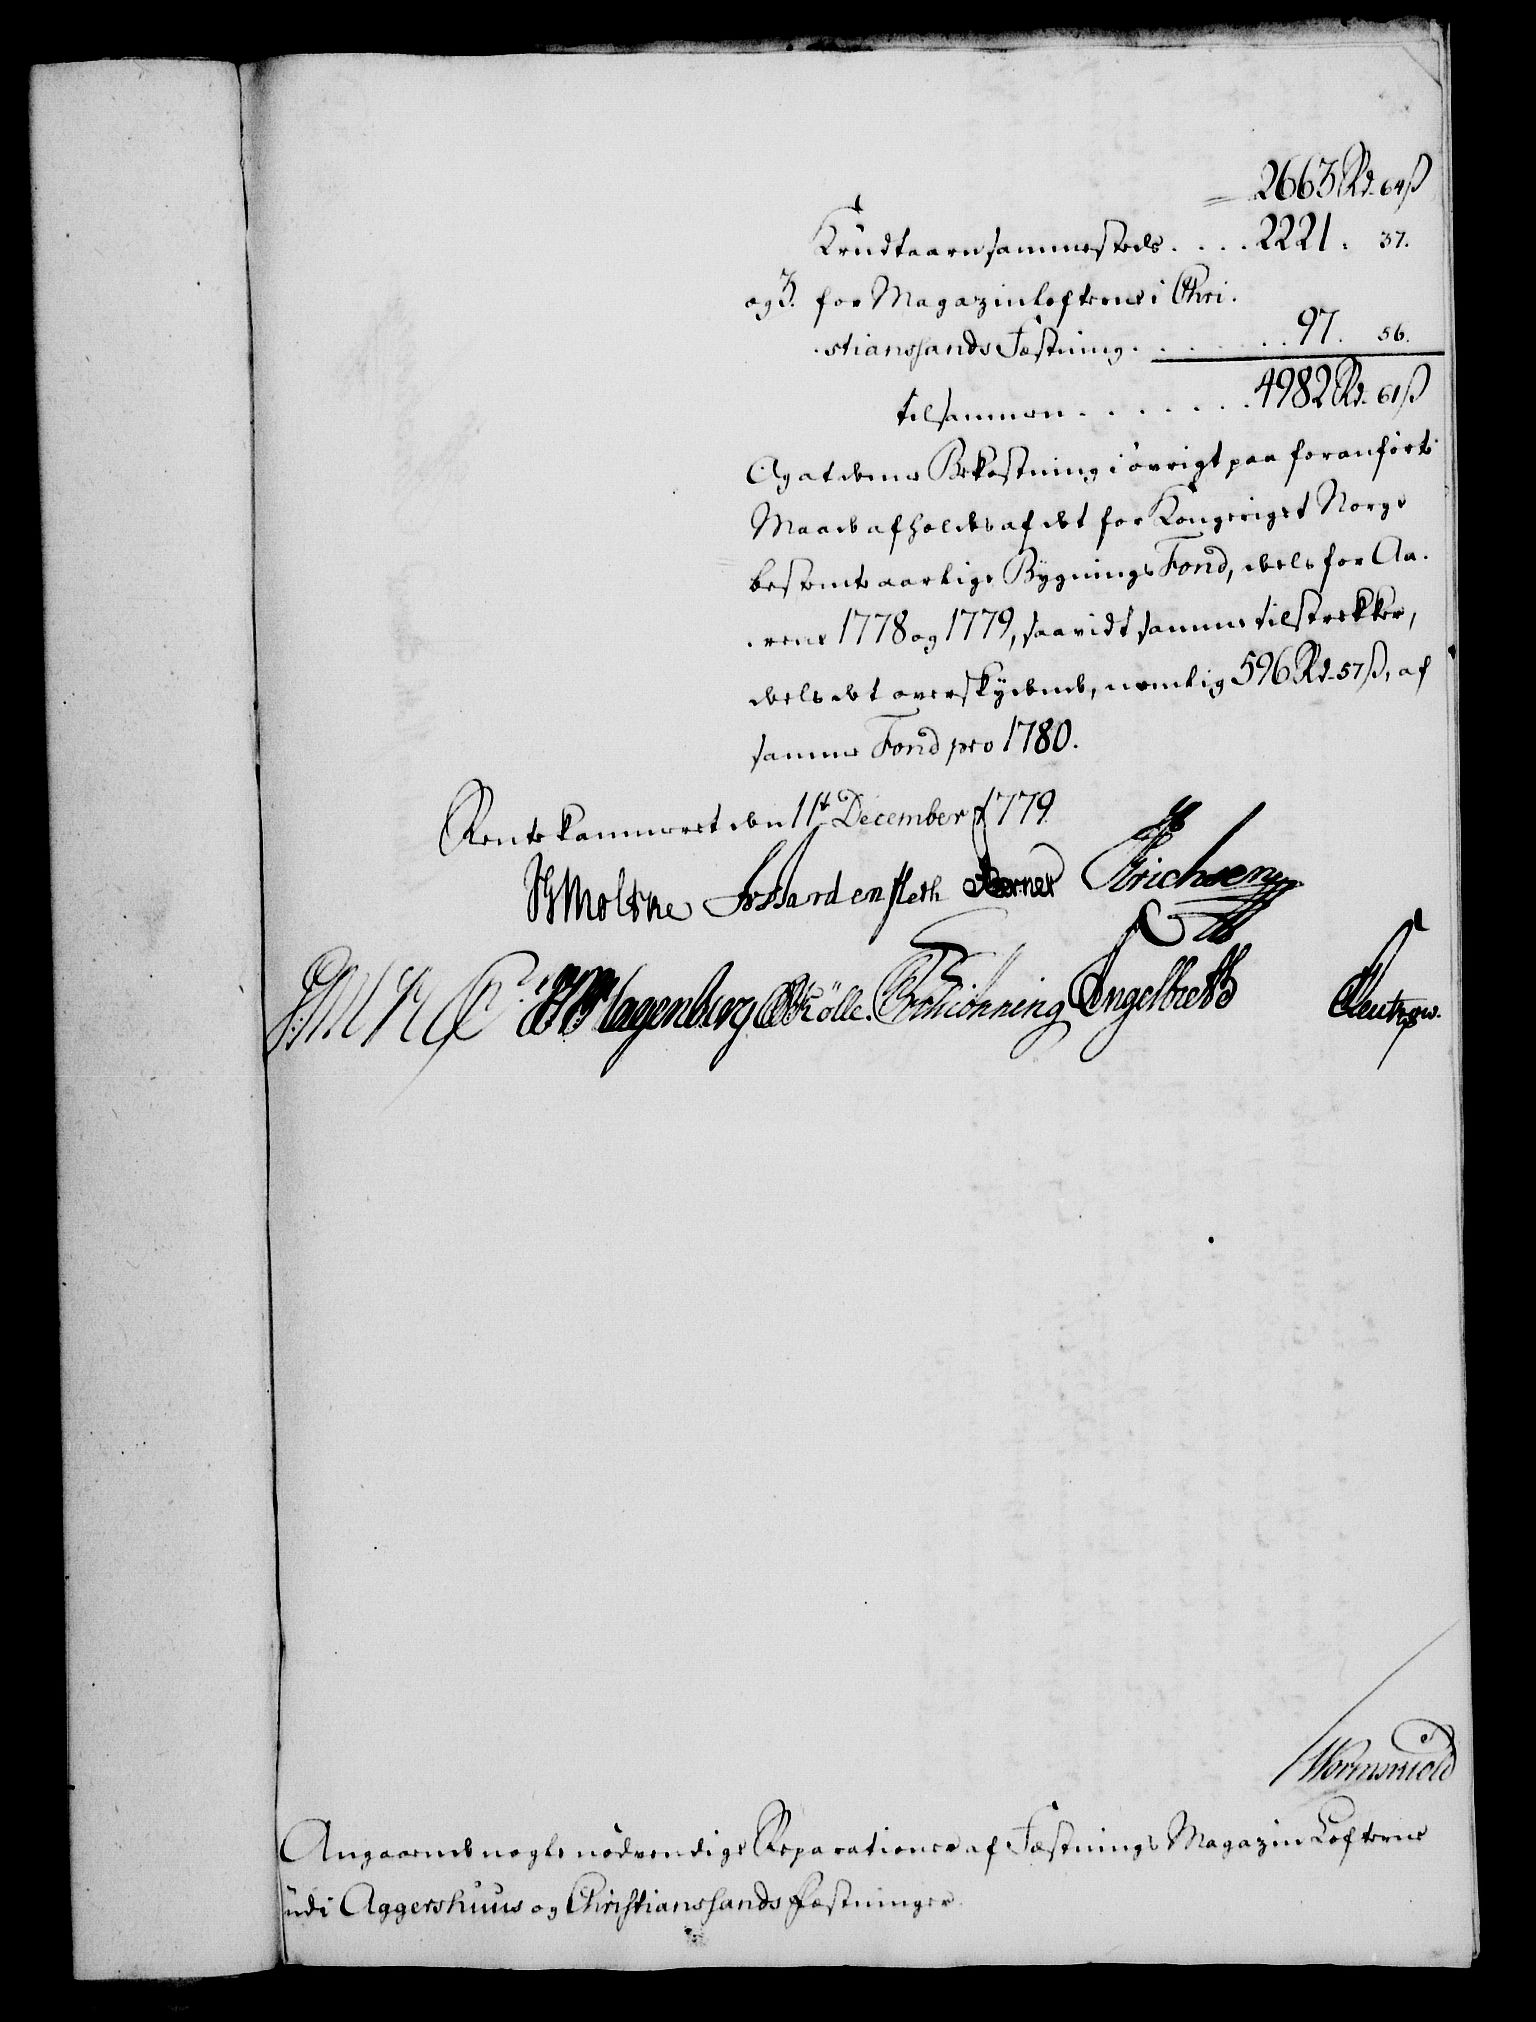 2663 Rd. 64 ß
Krudtaarn sammesteds . . . . 2221. 37.
og 3. for Magazinlofterne i Chri-
-stianssands Fæstning . . . . . . 97. 56.
tilsammen . . . . . . . 4982 Rd. 61 ß
Og at denne Bekostning i øvrigt paa foranførte
Maade afholdes af det for Kongeriget Norge
bestemte aarlige Bygnings Fond, deels for Aa-
-rene 1778 og 1779, saavidt samme tilstrekker,
deels det overskydende, nemlig 596 Rd. 57 ß, af
samme Fond pro 1780.
Rentekammeret den 11t December 1779.
HMoltke FvHardenfleth Berner Erichsen
Hagenberg Rölle. Schiönning Engelbreth Reutzow.
Wormskiold
Angaaende nogle nødvendige Reparationer af Fæstnings Magazin Lofterne
udi Aggershuus og Christianssands Fæstninger.